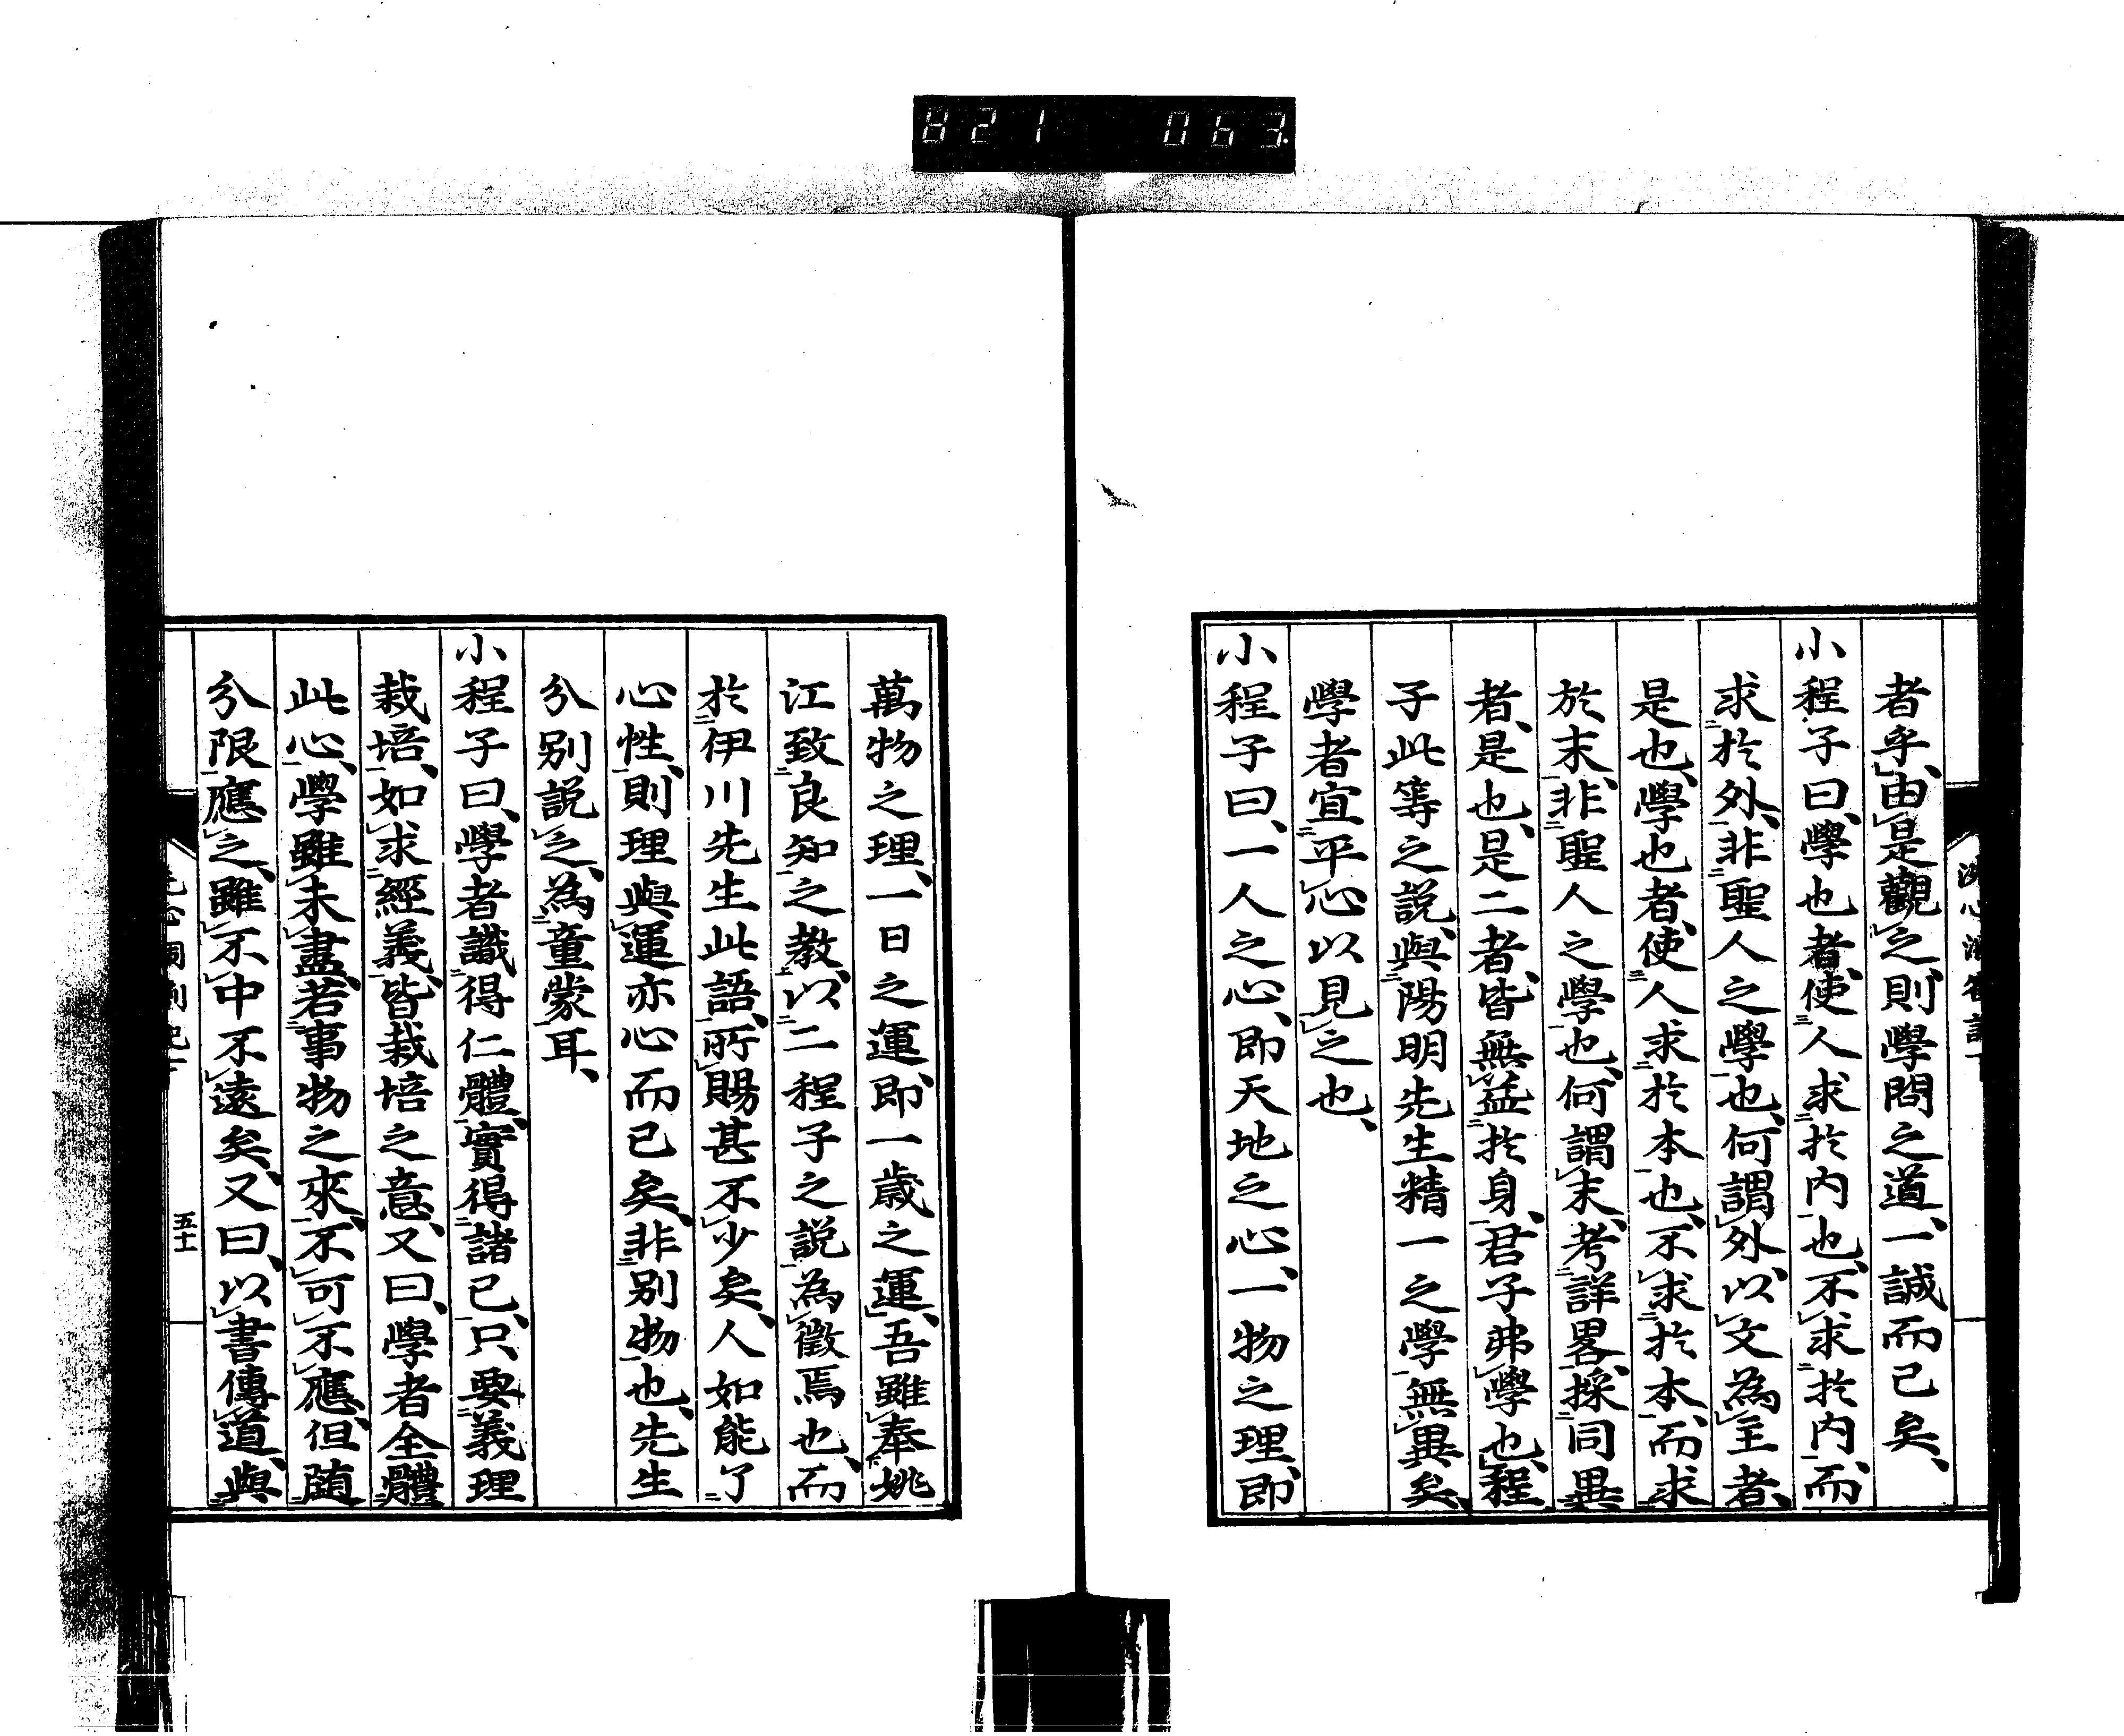 821 063.
者乎、由是觀之、則學問之道、一誠而已矣、
小程子曰、學也者、使人求於内也、不求於内、而
求於外、非聖人之學也、何謂外、以文為主者、
是也、學也者、使人求於本也、不求於本、而求
於末、非聖人之學也、何謂末、考詳畧、採同異
者、是也、是二者、皆無益於身、君子弗學也、程
子此等之説、與陽明先生精一之學無異矣、
學者宜平心以見之也、
小程子曰、一人之心、即天地之心、一物之理、即
萬物之理、一日之運、即一歳之運、吾雖奉姚
江致良知之教、以二程子之説為徴焉也、而
於伊川先生此語、所賜甚不少矣、人如能了
心性、則理與運亦心而已矣、非別物也、先生
分別説之、為童蒙耳、
小程子曰、學者識得仁體、實得諸己、只要義理
栽培、如求經義、皆栽培之意、又曰、學者全體
此心、學雖未盡、若事物之來、不可不應、但随
分限應之、雖不中不遠矣、又曰、以書傳道、與
五十